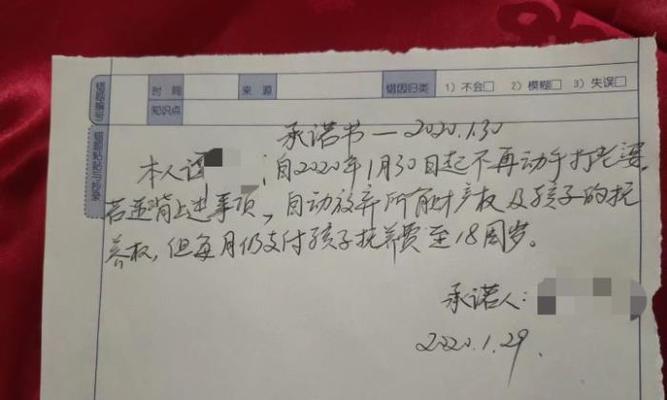 时 间
来 源
错因归类
1) 不会□
2) 模糊□
3) 失误□
知识点
错题编号
承诺书—2020.1.30
本人 ；自2020年1月30日起不再动手打老婆。
若违背上述事项，自动放弃所有财产权及孩子的抚
养权，但每月仍支付孩子抚养费至18周岁。
承诺人：
2020.1.29.